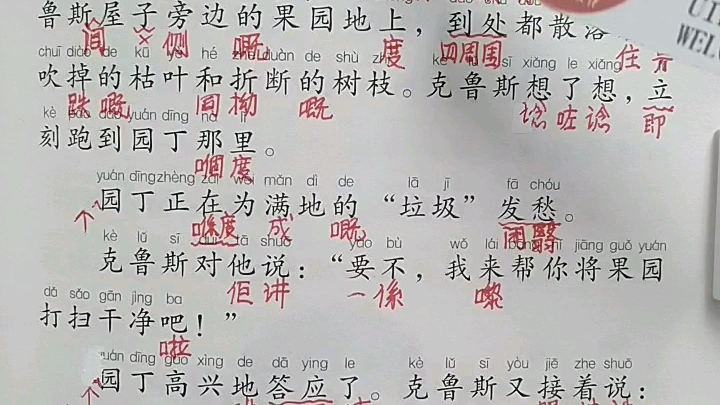 UT
WEL
鲁斯屋子旁边的果园地上，到处都散落
间 × 侧 嘅 度 四周围 住
chuī diào de kū yè hé zhé duàn de shù zhī kè lǔ sī xiǎng le xiǎng
吹掉的枯叶和折断的树枝。克鲁斯想了想，立
跌嘅 同拗 嘅 谂咗谂 即
刻跑到园丁那里。
嗰度
yuán dīng zhèng zài wèi mǎn dì de lā jī fā chóu
园丁正在为满地的“垃圾”发愁。
喺度 成 嘅 闭翳
kè lǔ sī duì tā shuō yào bù wǒ lái bāng nǐ jiāng guǒ yuán
克鲁斯对他说：“要不，我来帮你将果园
佢讲 一係 嚟
dǎ sǎo gān jìng ba
打扫干净吧！”
啦
yuán dīng gāo xìng de dā ying le kè lǔ sī yòu jiē zhe shuō
园丁高兴地答应了。克鲁斯又接着说：